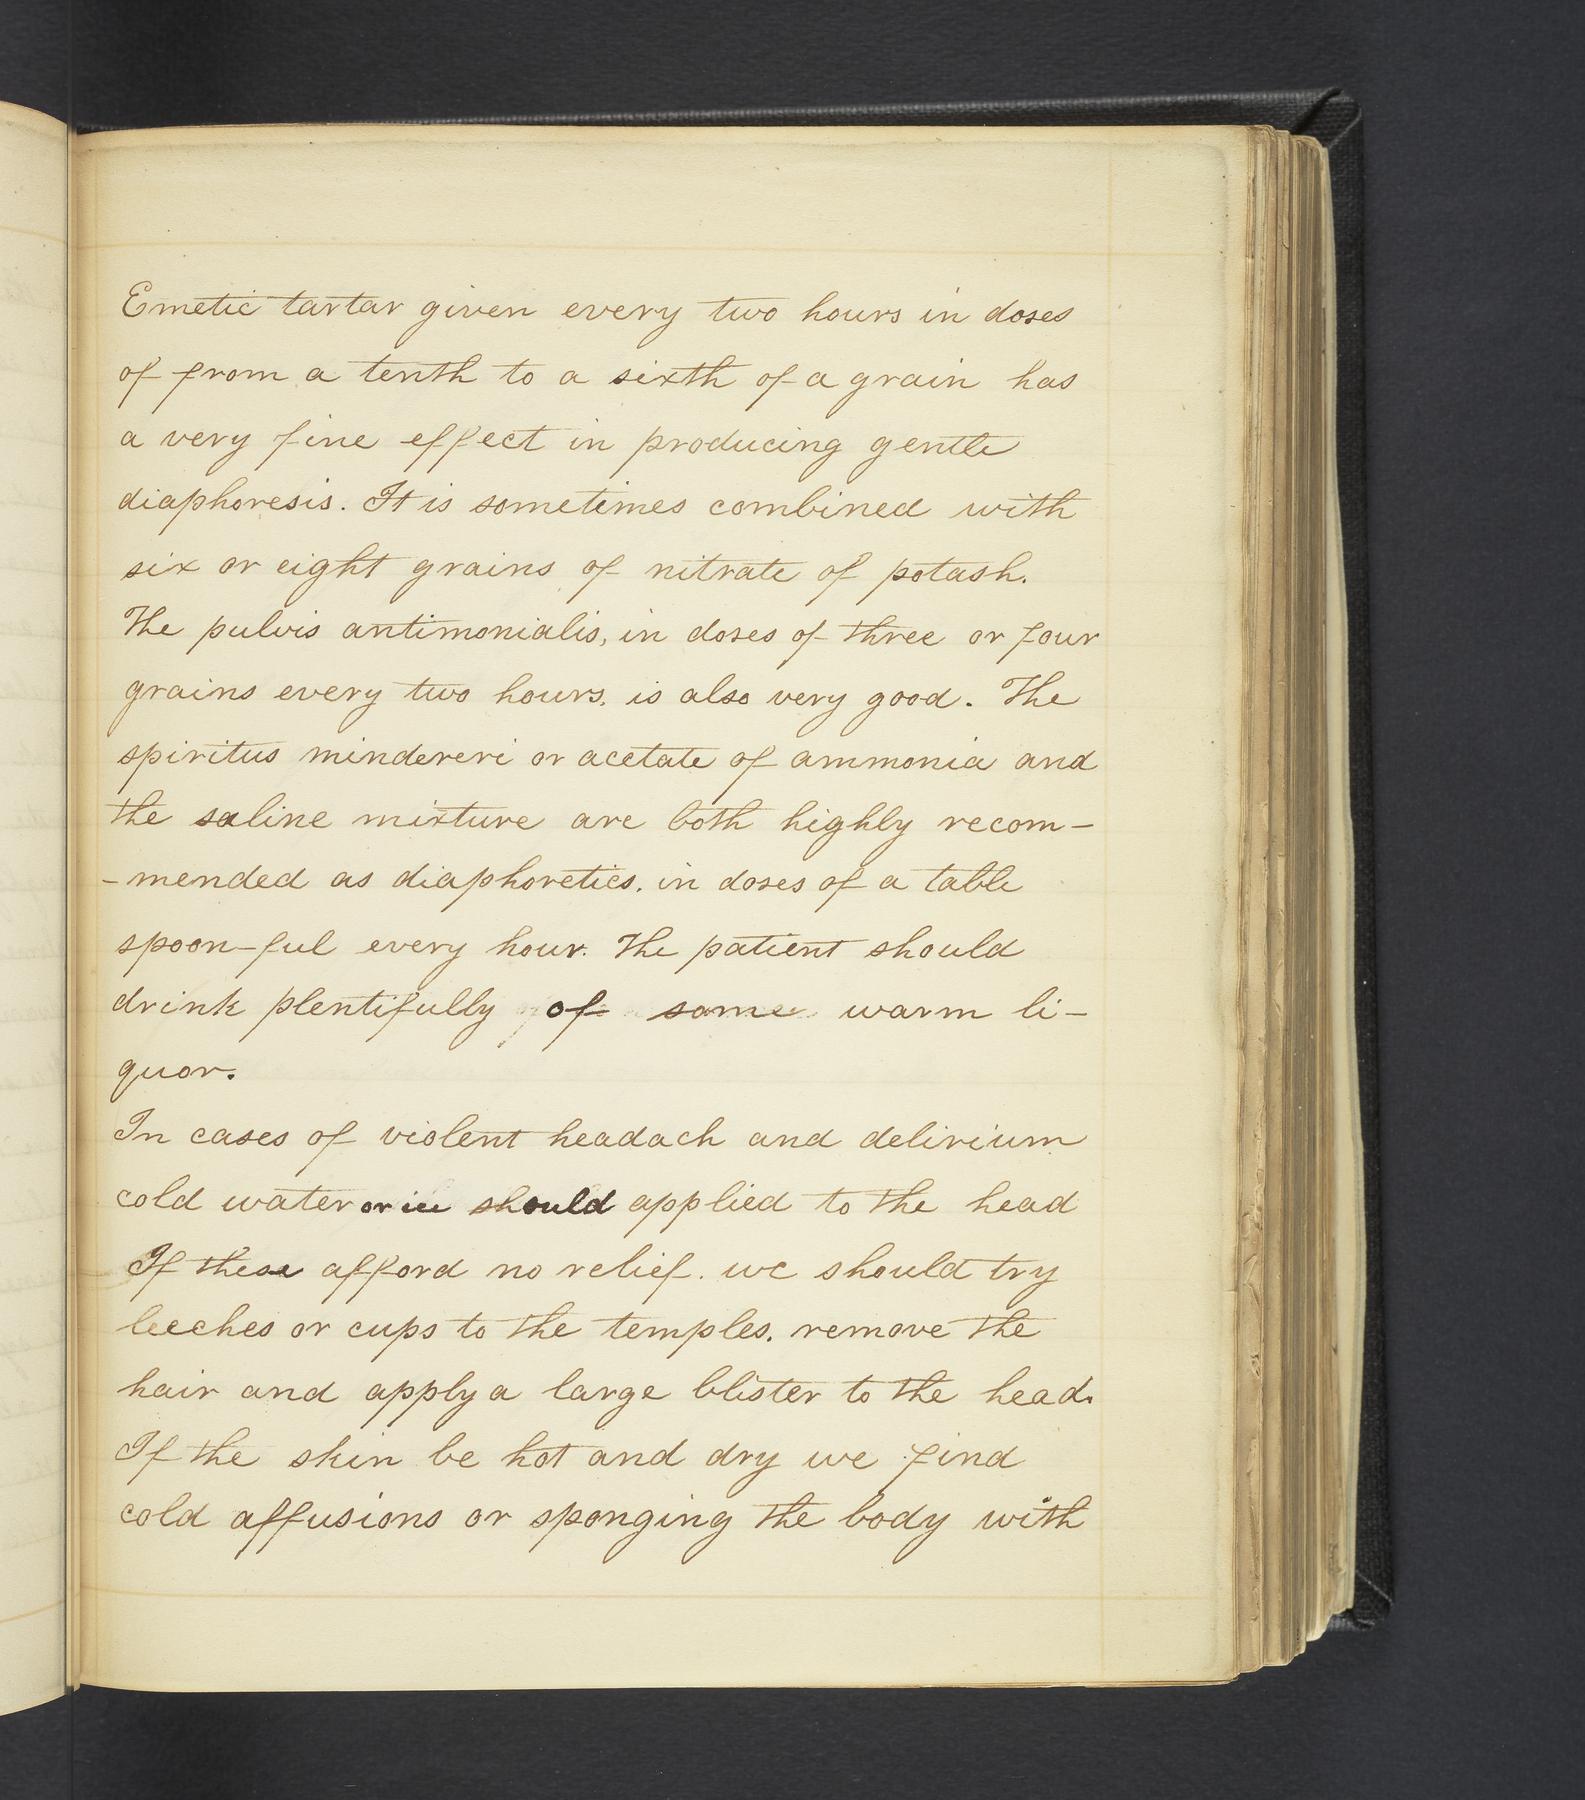 Emetic tartar given every two hours in doses
of from a tenth to a sixth of a grain has
a very fine effect in producing gentle
diaphoresis. It is sometimes combined with
six or eight grains of nitrate of potash.
The pulvis antimonialis, in doses of three or four
grains every two hours, is also very good. The
spiritus mindereri or acetate of ammonia and
the saline mixture are both highly recom-
-mended as diaphoretics, in doses of a table
spoon-ful every hour. The patient should
drink plentifully of some warm li-
quor.
In cases of violent headach and delirium
cold water or ice should applied to the head
If these afford no relief. we should try
leeches or cups to the temples, remove the
hair and apply a large blister to the head.
If the skin be hot and dry we find
cold affusions or sponging the body with